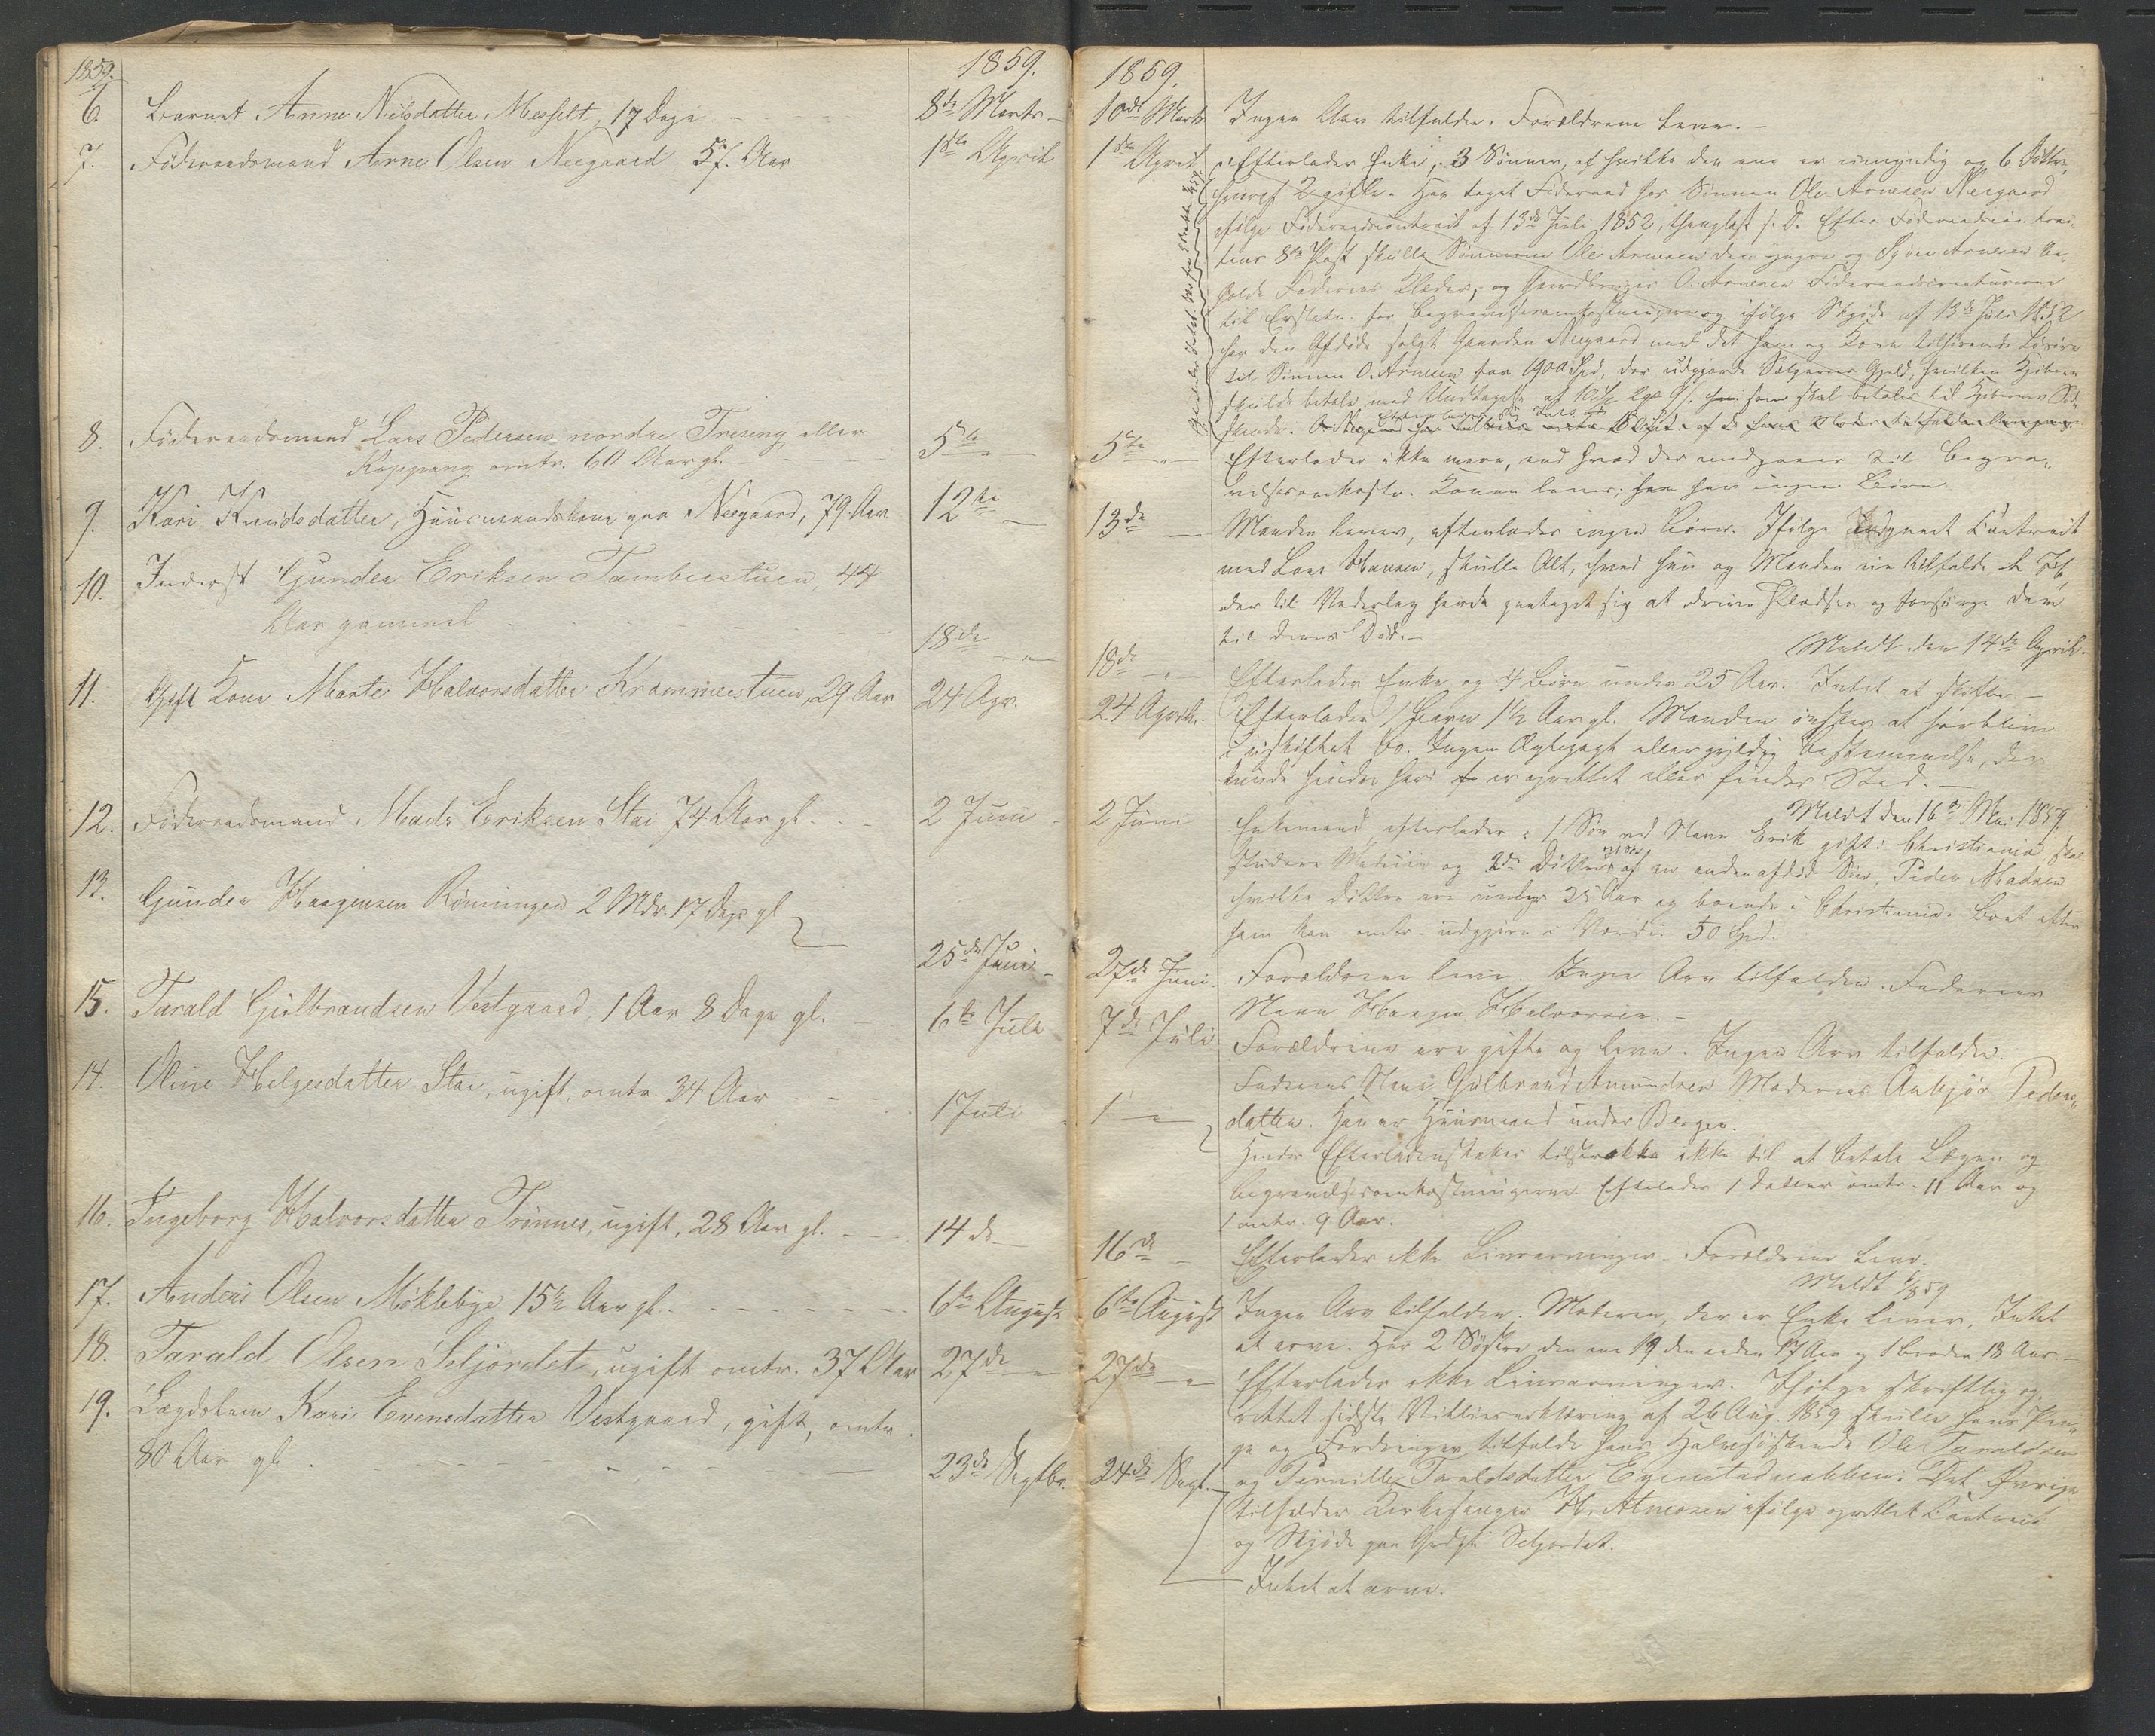 1859. 1859.
6. Barnet Anne Nilsdatter Messelt, 17 Dage 8de Marts
7. Føderaadsmand Arne Olsen Neegaard 57. Aar. 1ste April
8. Føderaadsmand Lars Pedersen nordre Trøseng eller 5te
Koppang omtr. 60 Aar gl.
9. Kari Knudsdatter, Huusmandskone paa Neegaard, 79 Aar 12te
10. Inderst Gunder Eriksen Tamburstuen, 44
Aar gammel 18de
11. Gift Kone Marte Halvorsdatter Krammerstuen, 29 Aar 24 Apr.
12. Føderaadsmand Mads Eriksen Stai 74 Aar gl. 2 Juni
13. Gunder Haagensen Rønningen 2 Mdr. 17 Dage gl
25de Juni
15. Tarald Gulbrandsen Vestgaard, 1 Aar 8 Dage gl. 6te Juli
14. Oline Helgesdatter Stai, ugift, omtr. 34 Aar 1 Juli
16. Ingeborg Halvorsdatter Trønnes, ugift, 28 Aar gl. 14de
17. Andreas Olsen Møklebye 15½ Aar gl. 6te August
18. Tarald Olsen Seljordet, ugift omtr. 37 Aar 27de
19. Lægdslem Kari Evensdatter Vestgaard, gift, omtr.
80 Aar gl. 23de Septbr.
1859.
10de Marts Ingen Arv tilfalder. Forældrene leve.
1ste April Efterlader Enke, 3 Sønner, af hvilke den ene er umyndig og 6 Døttre,
hvoraf 2 gifte. Har taget Føderaad hos Sønnen Ole Arnesen Neegaard
ifølge Føderaadscontract af 13de Juli 1852, thinglæst s. D. Efter Føderaadscontrac-
tens 8de Post skulle Sønnerne Ole Arnesen den yngre og Arnesen be-
holde Faderens Klæder, og Gaardbruger O. Arnesen Føderaadscreaturerne
til Erstatn. for Begravelsesomkostningerne og ifølge Skjøde af 13de Juli 1852
har den Afdøde solgt Gaarden Neegaard med det ham og Kone tilhørende Løsøre
til Sønnen O. Arnesen for 1900 Spd, der udgjorde Sælgerens Gjeld, hvilken Kjøberen
skulde betale med Undtagelse af som skal betales til Kjøberens Sød-
skende.
5te Efterlader ikke mere, end hvad der medgaaer til Begra-
velsesomkostn. Konen lever; har ingen Børn
13de Manden lever, efterlader ingen Børn. Ifølge Contract
med Lars Hansen, skulle Alt, hvad hun og Manden eie tilfalde L. H.,
der til Vederlag havde paataget sig at drive Pladsen og forsørge dem
til deres Død.
Meldt den 14de April.
18de Efterlader Enke og 4 Børn under 25 Aar. Intet at skifte.
24 April. Efterlader 1 Barn 1½ Aar gl. Manden ønsker at forblive
i uskiftet Bo. Ingen Ægtepagt eller gyldig Bestemmelse, der
kunde hindre heri er oprettet eller finder Sted.
Meldt den 16de Mai 1859.
2 Juni Enkemand efterlader: 1 Søn ved Navn Erik gift i Christiania skal
studere Medicin og 2de Døttre af en anden afdød Søn, Peder Madsen
hvilke Døttre ere under 25 Aar og boende i Christiania. Boet efter
ham kan omtr. udgjøre i Værdi 50 Spd.
27de Juni. Forældrene leve. Ingen Arv tilfalder. Faderens
Navn Haagen Halvorsen.
7de Juli Forældrene ere gifte og leve. Ingen Arv tilfalder.
Faderens Navn Gulbrand Amundsen Moderens Anbjør Peders-
datter. Han er Huusmand under Bergen.
1 Hendes Efterladenskaber tilstrække ikke til at betale Lægen og
Begravelsesomkostningerne. Efterlader 1 Datter omtr. 11 Aar og
1 omtr. 9 Aar.
16de Efterlader ikke Livsarvinger. Forældrene leve.
Meldt
6te August Ingen Arv tilfalder. Moderen, der er Enke lever, Intet
at arve. Har 2 Søstre den ene 19 den anden 17 Aar og 1 Broder 18 Aar.
27de Efterlader ikke Livsarvinger. Ifølge skriftlig op-
rettet sidste Villieserklæring af 26 Aug. 1859 skulle hans Pen-
ge og Fordringer tilfalde hans Halvsøskende Ole Taraldsen
24de Sept. og Pernille Taraldsdatter Evenstadnabben. Det Øvrige
tilfalder Kirkesanger H. Atneosen ifølge oprettet Contract
og Skjøde paa Seljordet.
Intet at arve.